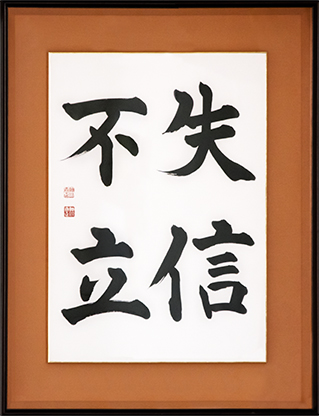 失信
不立